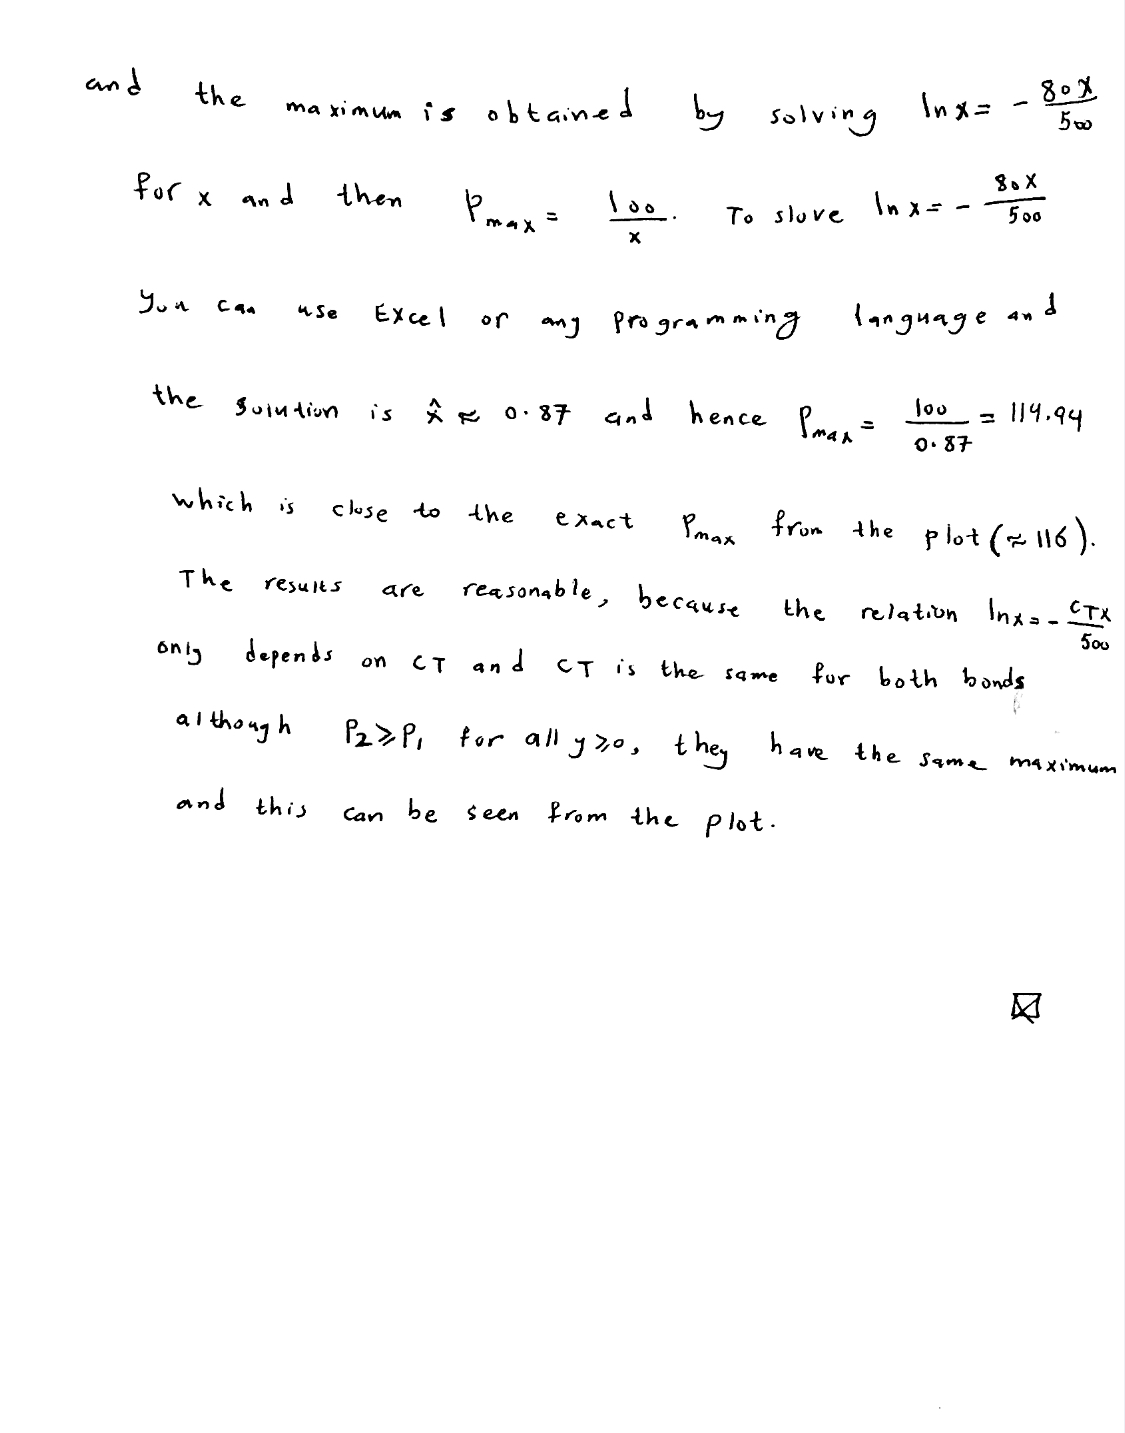 and the maximum is obtained by solving ln x = - 80x/500
for x and then Pmax = 100/x. To slove ln x = - 80x/500
you can use Excel or any programming language and
the solution is x̂ ≈ 0.87 and hence Pmax = 100/0.87 = 114.94
which is close to the exact Pmax from the plot (≈ 116).
The results are reasonable, because the relation ln x = - CTx/500
only depends on CT and CT is the same for both bonds
although P₂ ⩾ P₁ for all y ⩾ 0, they have the same maximum
and this can be seen from the plot.